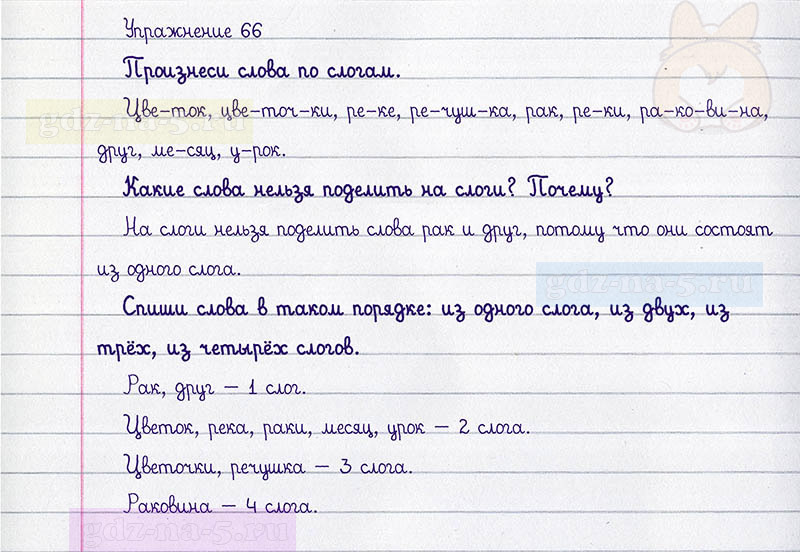 Упражнение 66
Произнеси слова по слогам.
Цве-ток, цве-точ-ки, ре-ке, ре-чуш-ка, рак, ре-ки, ра-ко-ви-на,
друг, ме-сяц, у-рок.
Какие слова нельзя поделить на слоги? Почему?
На слоги нельзя поделить слова рак и друг, потому что они состоят
из одного слога.
Спиши слова в таком порядке: из одного слога, из двух, из
трёх, из четырёх слогов.
Рак, друг – 1 слог.
Цветок, река, раки, месяц, урок – 2 слога.
Цветочки, речушка – 3 слога.
Раковина – 4 слога.
gdz-na-5.ru
gdz-na-5.ru
gdz-na-5.ru